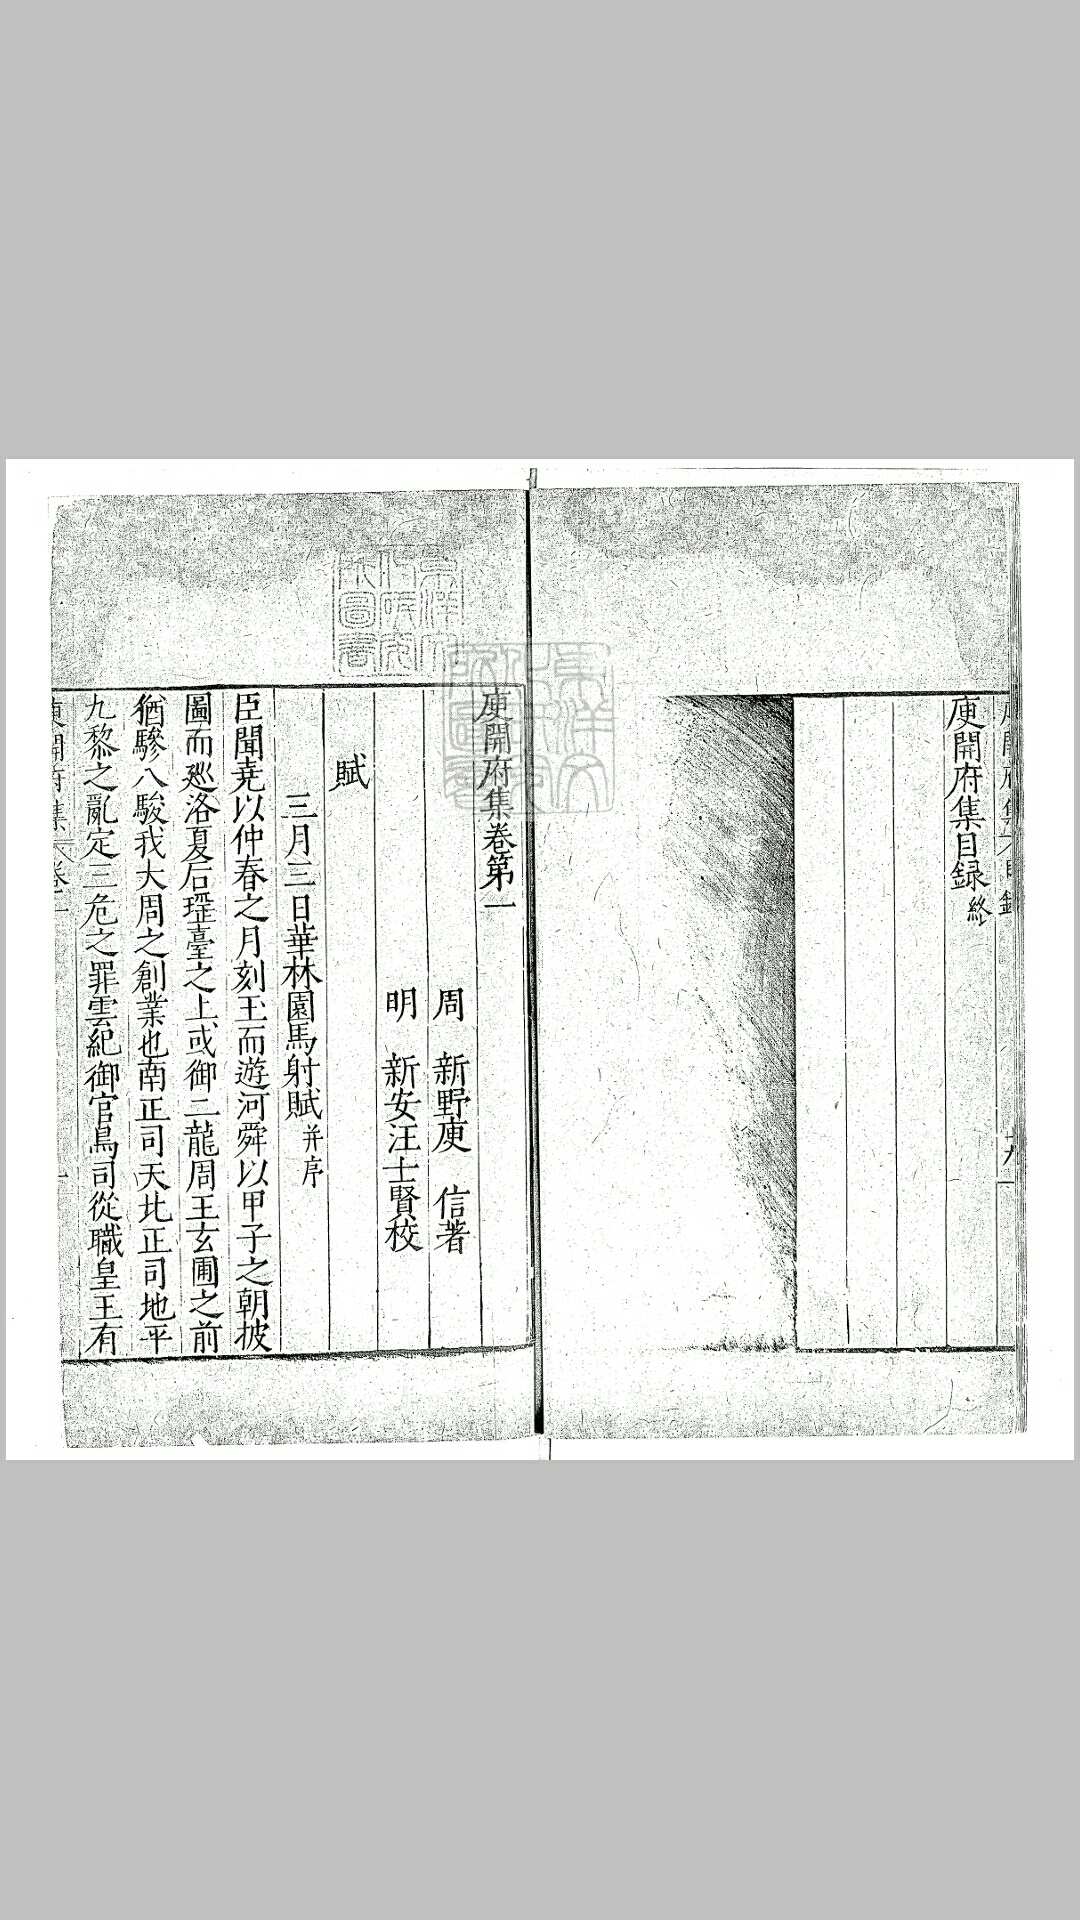 庾開府集目録終
庾開府集卷第一
周 新野庾 信著
明 新安汪士賢校
賦
三月三日華林園馬射賦并序
臣聞堯以仲春之月刻玉而遊河舜以甲子之朝披
圖而廵洛夏后瑆臺之上或御二龍周王玄圃之前
猶驂八駿我大周之創業也南正司天北正司地平
九黎之亂定三危之罪雲紀御官鳥司從職皇王有